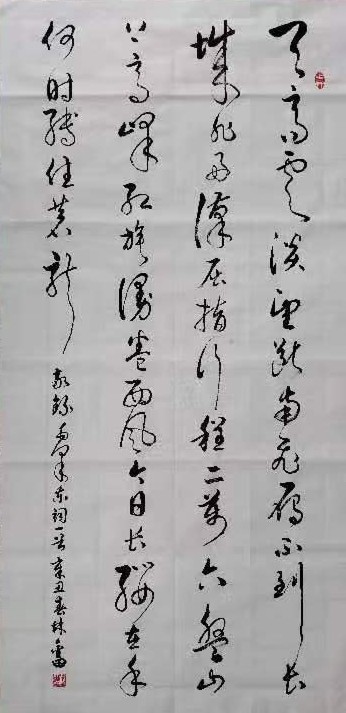 天高雲淡望断南飛雁不到长
城非好漢屈指行程二萬六盤山
上高峰红旗漫卷西风今日长缨在手
何时缚住苍龍 敬錄毛泽东词一首 辛丑春林